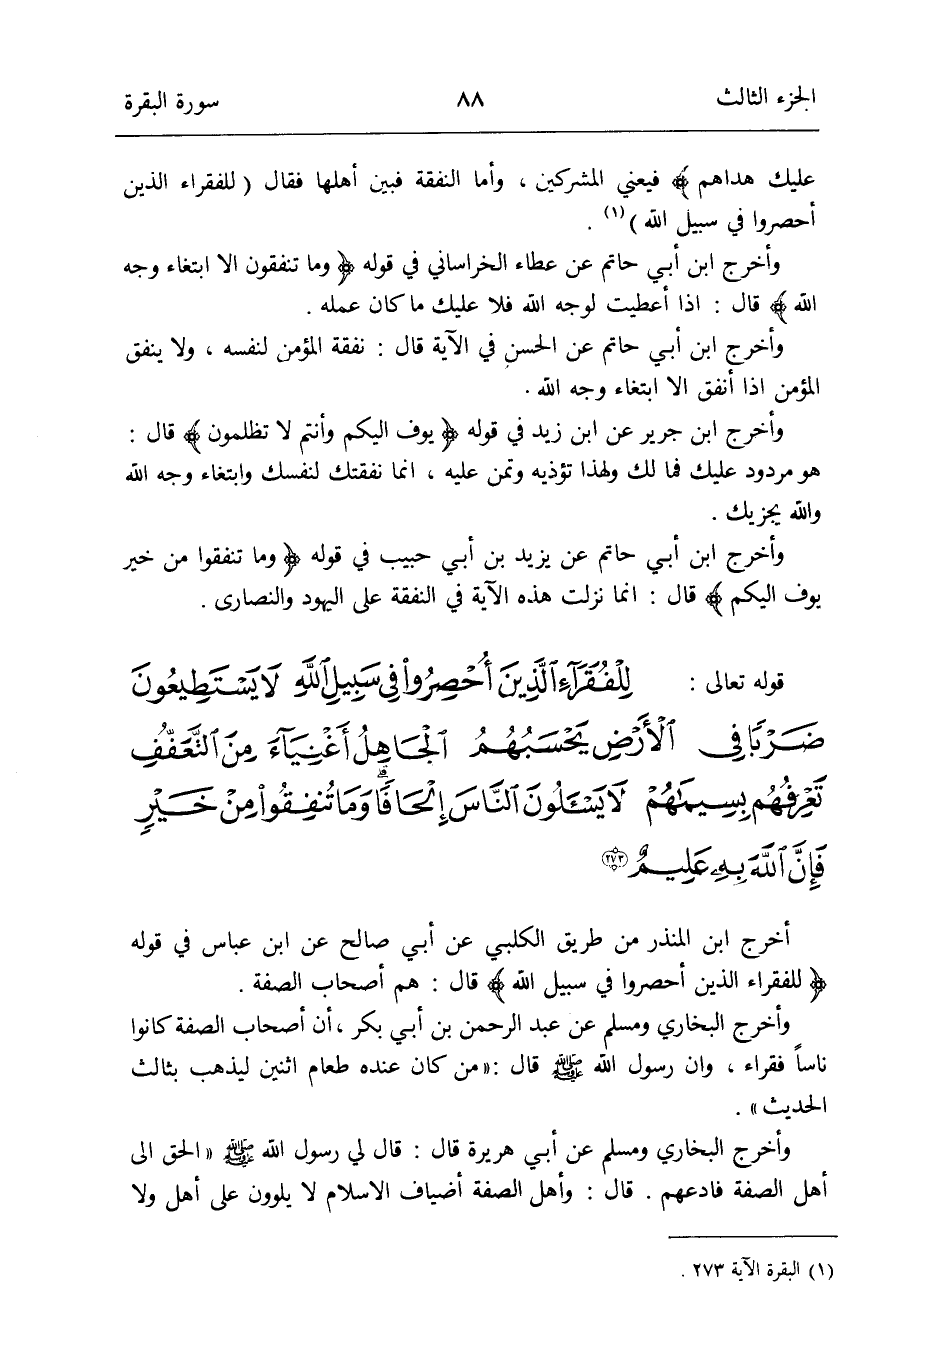 الجزء الثالث ٨٨ سورة البقرة
عليك هداهم ﴾ فيعني المشركين ، وأما النفقة فبين أهلها فقال ( للفقراء الذين
أحصروا في سبيل الله )(١) .
وأخرج ابن أبي حاتم عن عطاء الخراساني في قوله ﴿ وما تنفقون الا ابتغاء وجه
الله ﴾ قال : اذا أعطيت لوجه الله فلا عليك ما كان عمله .
وأخرج ابن أبي حاتم عن الحسن في الآية قال : نفقة المؤمن لنفسه ، ولا ينفق
المؤمن اذا أنفق الا ابتغاء وجه الله .
وأخرج ابن جرير عن ابن زيد في قوله ﴿ يوف اليكم وأنتم لا تظلمون ﴾ قال :
هو مردود عليك فما لك ولهذا تؤذيه وتمن عليه ، انما نفقتك لنفسك وابتغاء وجه الله
والله يجزيك .
وأخرج ابن أبي حاتم عن يزيد بن أبي حبيب في قوله ﴿ وما تنفقوا من خير
يوف اليكم ﴾ قال : انما نزلت هذه الآية في النفقة على اليهود والنصارى .
قوله تعالى : لِلْفُقَرَآءِ ٱلَّذِينَ أُحْصِرُوا۟ فِى سَبِيلِ ٱللَّهِ لَا يَسْتَطِيعُونَ
ضَرْبًا فِى ٱلْأَرْضِ يَحْسَبُهُمُ ٱلْجَاهِلُ أَغْنِيَآءَ مِنَ ٱلتَّعَفُّفِ
تَعْرِفُهُم بِسِيمَٰهُمْ لَا يَسْـَٔلُونَ ٱلنَّاسَ إِلْحَافًا ۗ وَمَا تُنفِقُوا۟ مِنْ خَيْرٍ
فَإِنَّ ٱللَّهَ بِهِۦ عَلِيمٌ ٢٧٣
أخرج ابن المنذر من طريق الكلبي عن أبي صالح عن ابن عباس في قوله
﴿ للفقراء الذين أحصروا في سبيل الله ﴾ قال : هم أصحاب الصفة .
وأخرج البخاري ومسلم عن عبد الرحمن بن أبي بكر ، أن أصحاب الصفة كانوا
ناساً فقراء ، وان رسول الله ﷺ قال : « من كان عنده طعام اثنين ليذهب بثالث
الحديث » .
وأخرج البخاري ومسلم عن أبي هريرة قال : قال لي رسول الله ﷺ « الحق الى
أهل الصفة فادعهم . قال : وأهل الصفة أضياف الاسلام لا يلوون على أهل ولا
(١) البقرة الآية ٢٧٣ .